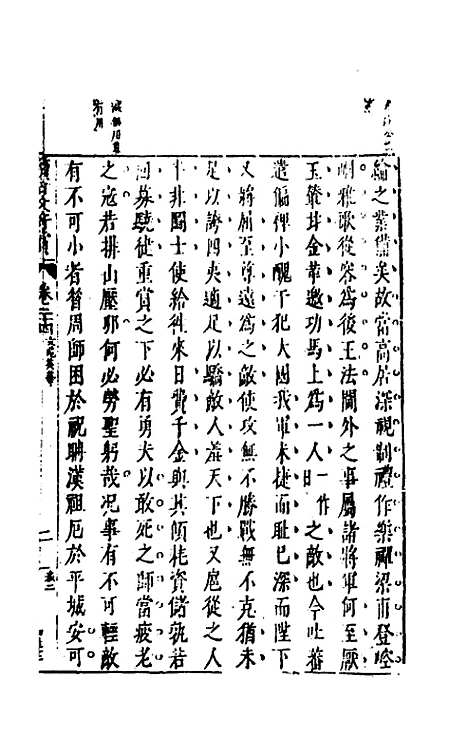 綸之業備矣故當高居深視制禮作樂禪梁甫登崆
峒雅歌從容為後王法閫外之事屬諸將軍何至厭
玉輦井金華邀功馬上為一人一作之敵也今吐蕃
遣偏裨小醜干犯大國我軍未捷而恥已深而陛下
又將屈至尊遠為之敵使攻無不勝戰無不克猶未
足以誇四夷適足以驕敵人羞天下也又扈從之人
十非鬬士使給徃來日費千金與其傾耗資儲孰若
回募驍徒重賞之下必有勇夫以敢死之師當疲老
之寇若排山壓卵何必勞聖躬哉况事有不可輕敵
有不可小者昔周師困於祝聃漢祖厄於平城安可
卷三
二